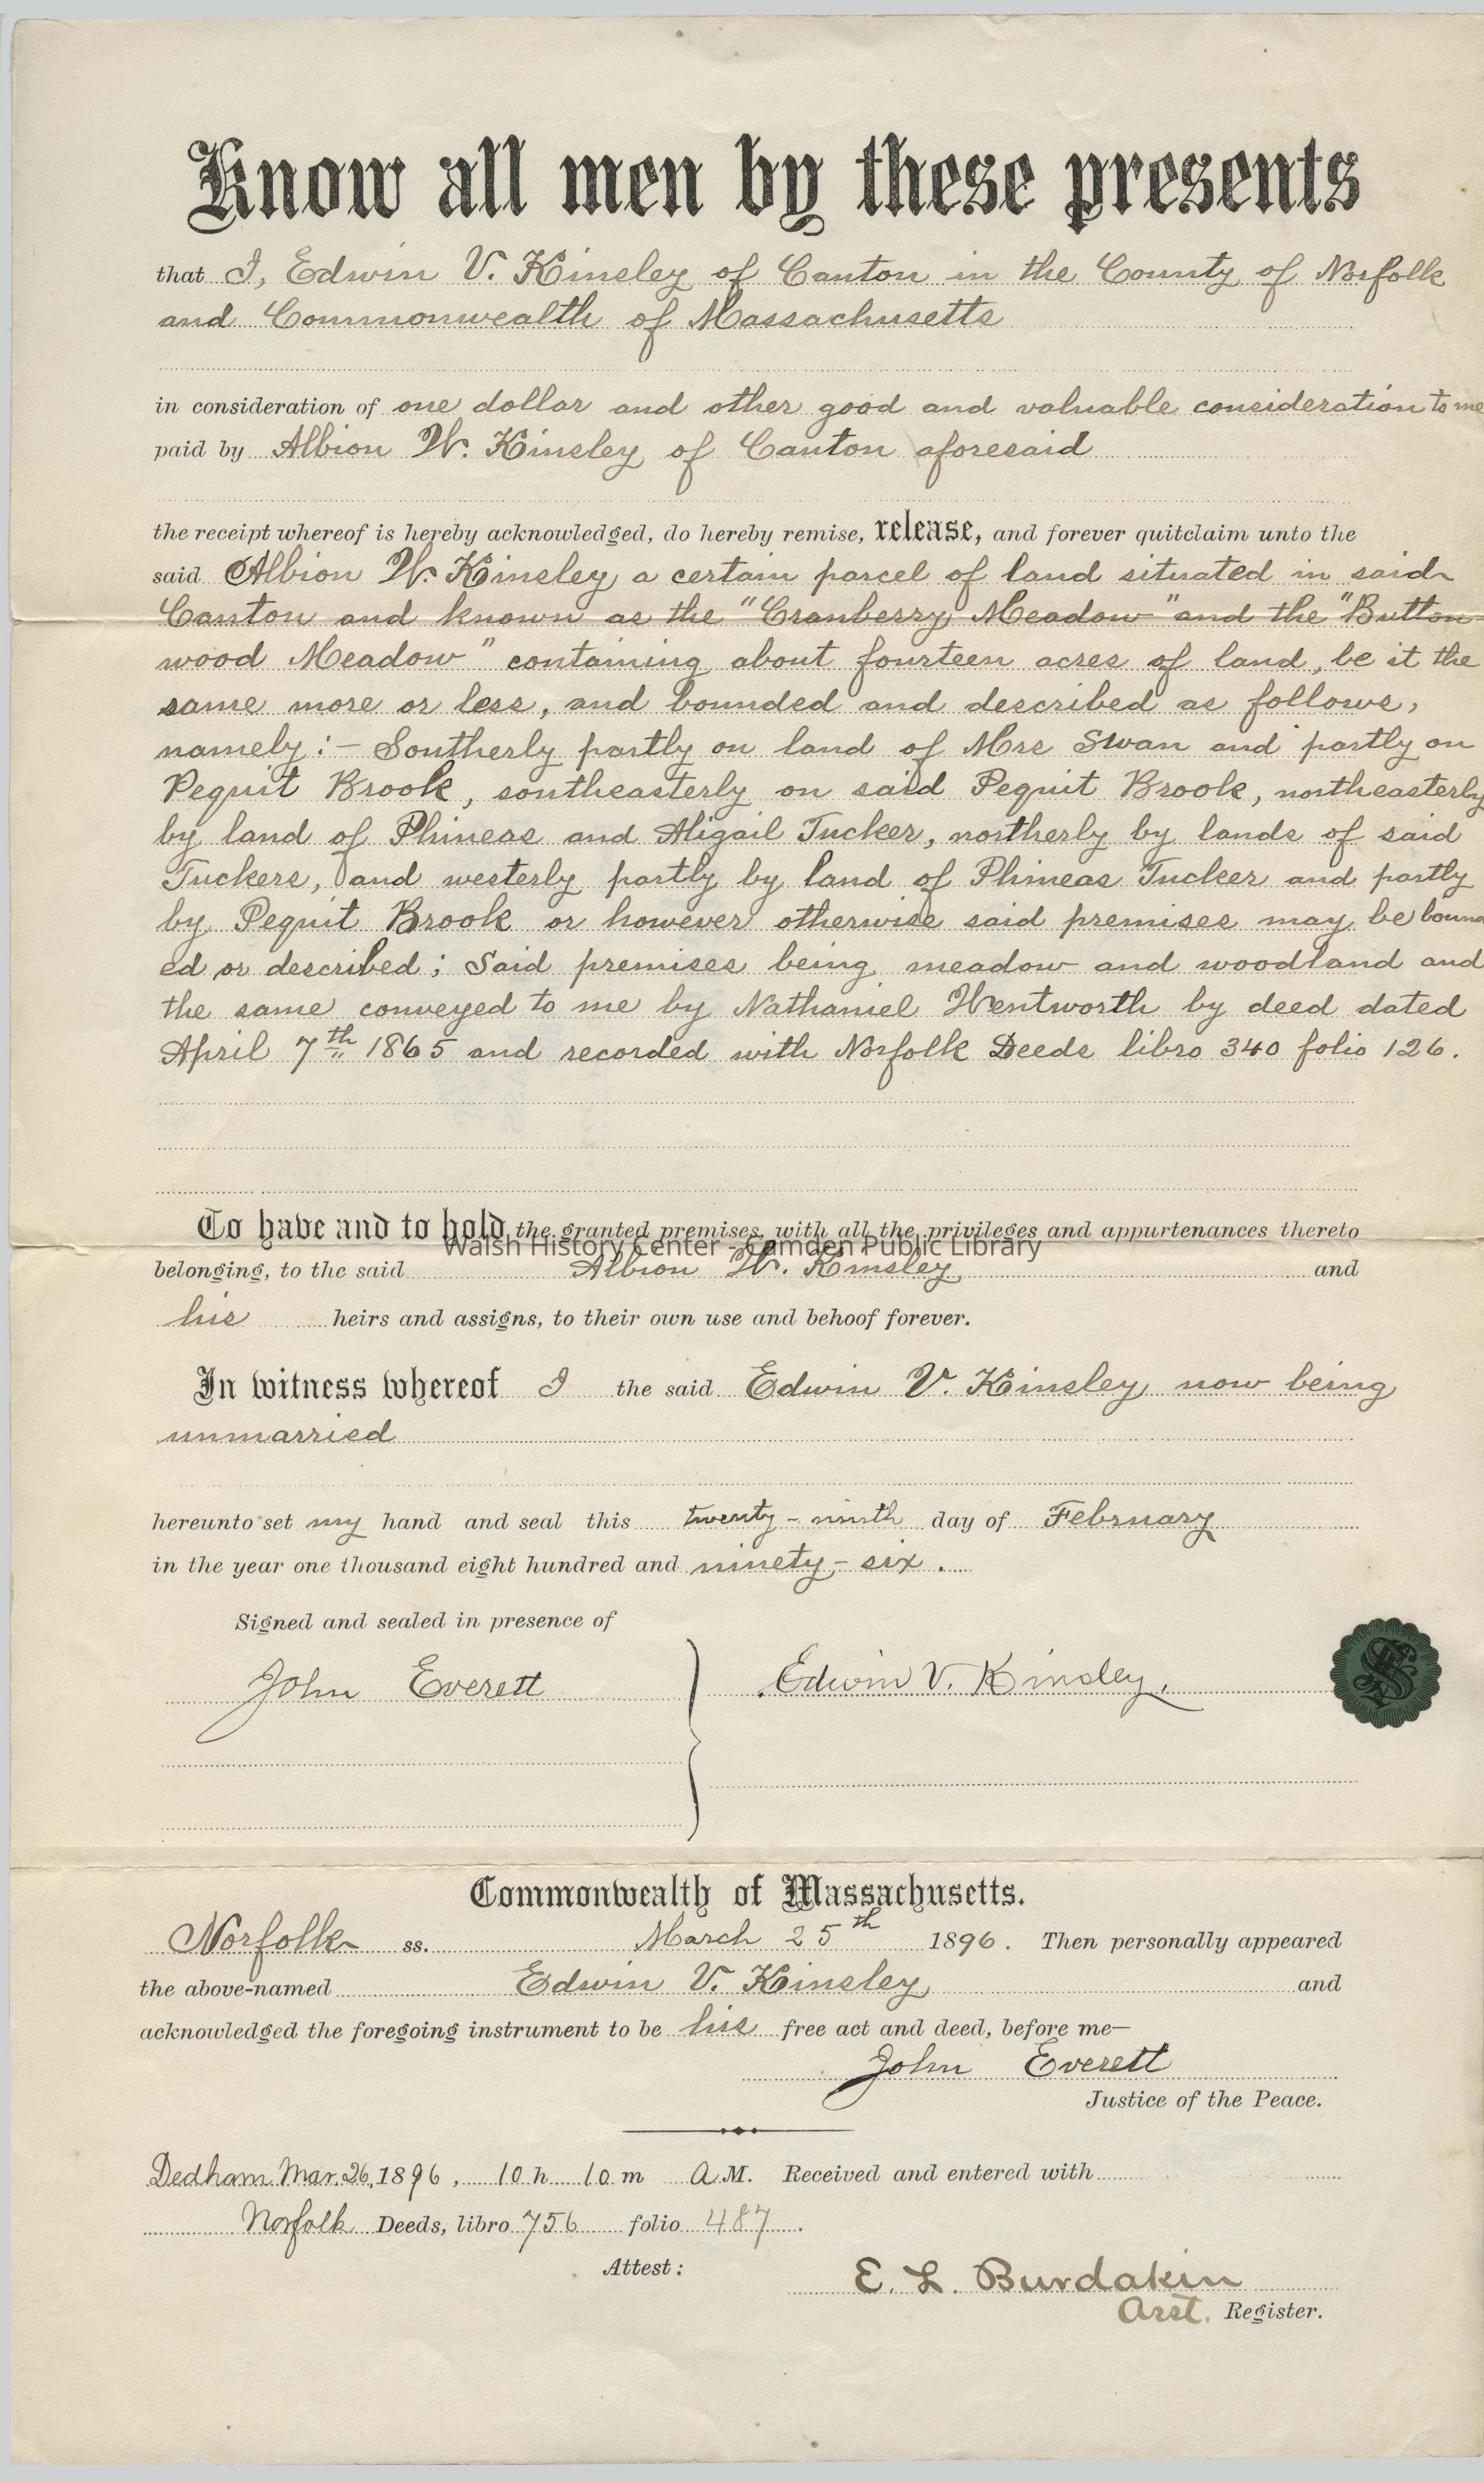 Know all men by these presents
that I, Edwin V. Kinsley of Canton in the County of Norfolk
and Commonwealth of Massachusetts
in consideration of one dollar and other good and valuable consideration to me
paid by Albion W. Kinsley of Canton aforesaid
the receipt whereof is hereby acknowledged, do hereby remise, release, and forever quitclaim unto the
said Albion W. Kinsley a certain parcel of land situated in said
Canton and known as the "Cranberry Meadow" and the "Button-
wood Meadow" containing about fourteen acres of land, be it the
same more or less, and bounded and described as follows,
namely :- Southerly partly on land of Mrs Swan and partly on
Pequit Brook, southeasterly on said Pequit Brook, northeasterly
by land of Phineas and Aligail Tucker, northerly by lands of said
Tuckers, and westerly partly by land of Phineas Tucker and partly
by Pequit Brook or however otherwise said premises may be bound
ed or described; Said premises being meadow and woodland and
the same conveyed to me by Nathaniel Wentworth by deed dated
April 7th 1865 and recorded with Norfolk Deeds libro 340 folio 126.
To have and to hold the granted premises, with all the privileges and appurtenances thereto
Walsh History Center - Camden Public Library
belonging, to the said Albion W. Kinsley and
his heirs and assigns, to their own use and behoof forever.
In witness whereof I the said Edwin V. Kinsley now being
unmarried
hereunto set my hand and seal this twenty-ninth day of February
in the year one thousand eight hundred and ninety-six.
Signed and sealed in presence of
John Everett Edwin V. Kinsley.
Commonwealth of Massachusetts.
Norfolk ss. March 25th 1896. Then personally appeared
the above-named Edwin V. Kinsley and
acknowledged the foregoing instrument to be his free act and deed, before me—
John Everett
Justice of the Peace.
Dedham Mar. 26, 1896, 10 h 10 m A.M. Received and entered with
Norfolk Deeds, libro 756 folio 487.
Attest: E. L. Burdakin
Asst. Register.